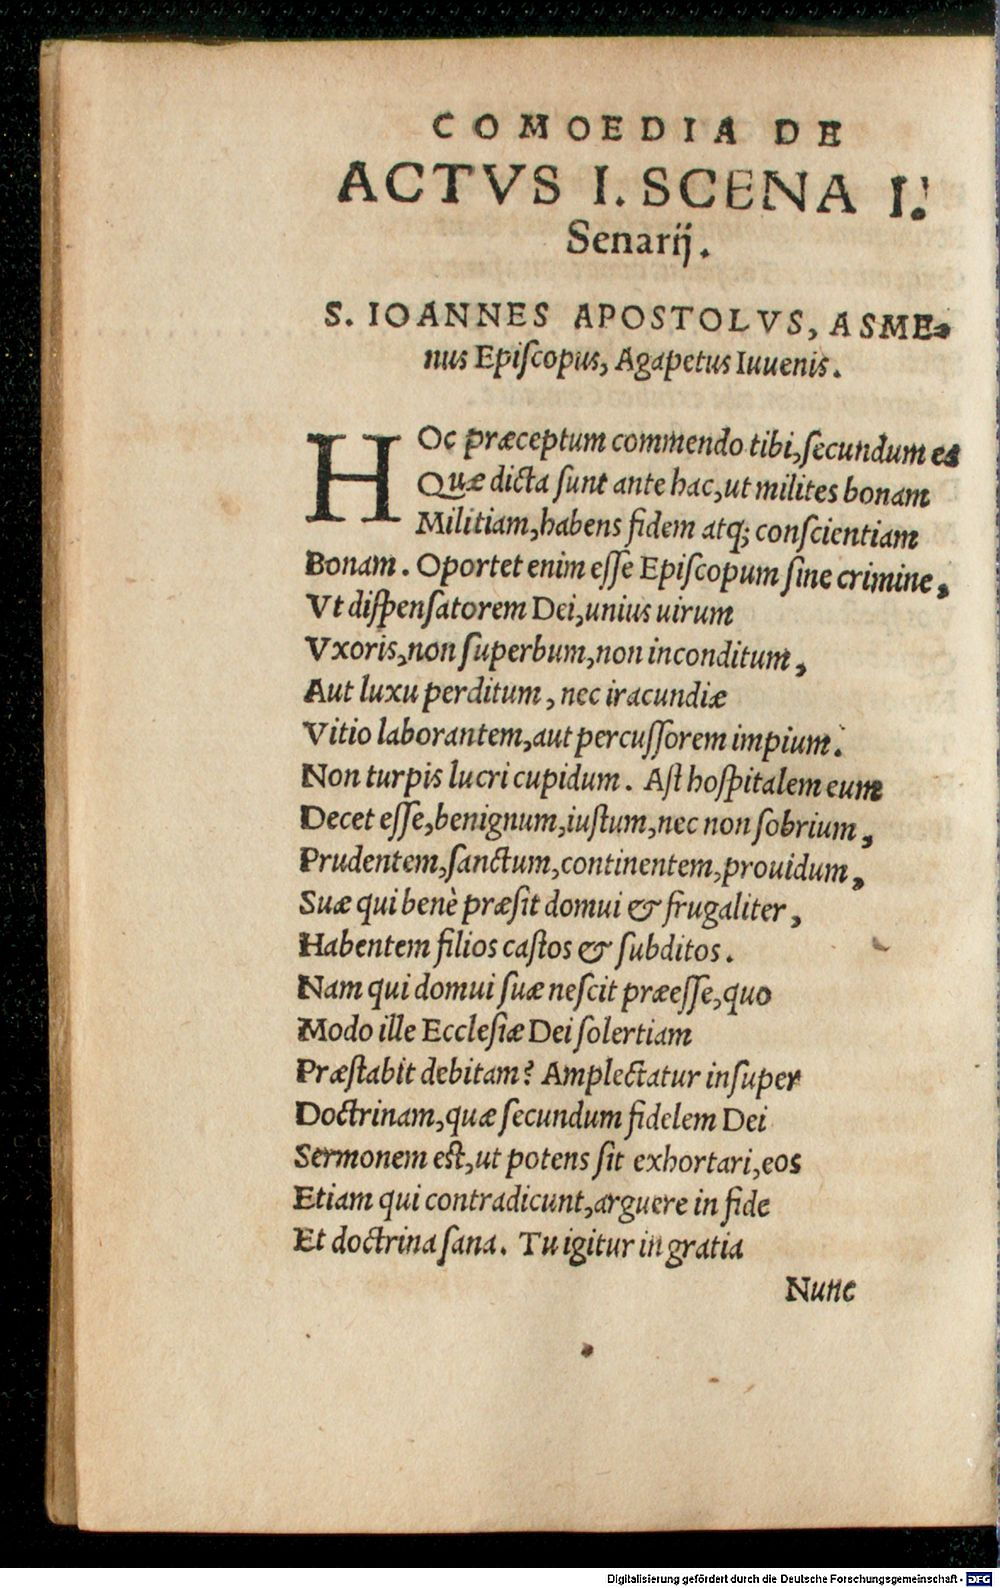 COMOEDIA DE
ACTVS I. SCENA I.
Senarij.
S. IOANNES APOSTOLVS, ASME-
nus Episcopus, Agapetus Iuuenis.
HOc præceptum commendo tibi, secundum ea
Quæ dicta sunt ante hac, ut milites bonam
Militiam, habens fidem atq; conscientiam
Bonam. Oportet enim esse Episcopum sine crimine,
Vt dispensatorem Dei, unius uirum
Vxoris, non superbum, non inconditum,
Aut luxu perditum, nec iracundiæ
Vitio laborantem, aut percussorem impium.
Non turpis lucri cupidum. Ast hospitalem eum
Decet esse, benignum, iustum, nec non sobrium,
Prudentem, sanctum, continentem, prouidum,
Suæ qui benè præsit domui & frugaliter,
Habentem filios castos & subditos.
Nam qui domui suæ nescit præesse, quo
Modo ille Ecclesiæ Dei solertiam
Præstabit debitam? Amplectatur insuper
Doctrinam, quæ secundum fidelem Dei
Sermonem est, ut potens sit exhortari, eos
Etiam qui contradicunt, arguere in fide
Et doctrina sana. Tu igitur in gratia
Nunc
Digitalisierung gefördert durch die Deutsche Forschungsgemeinschaft - DFG